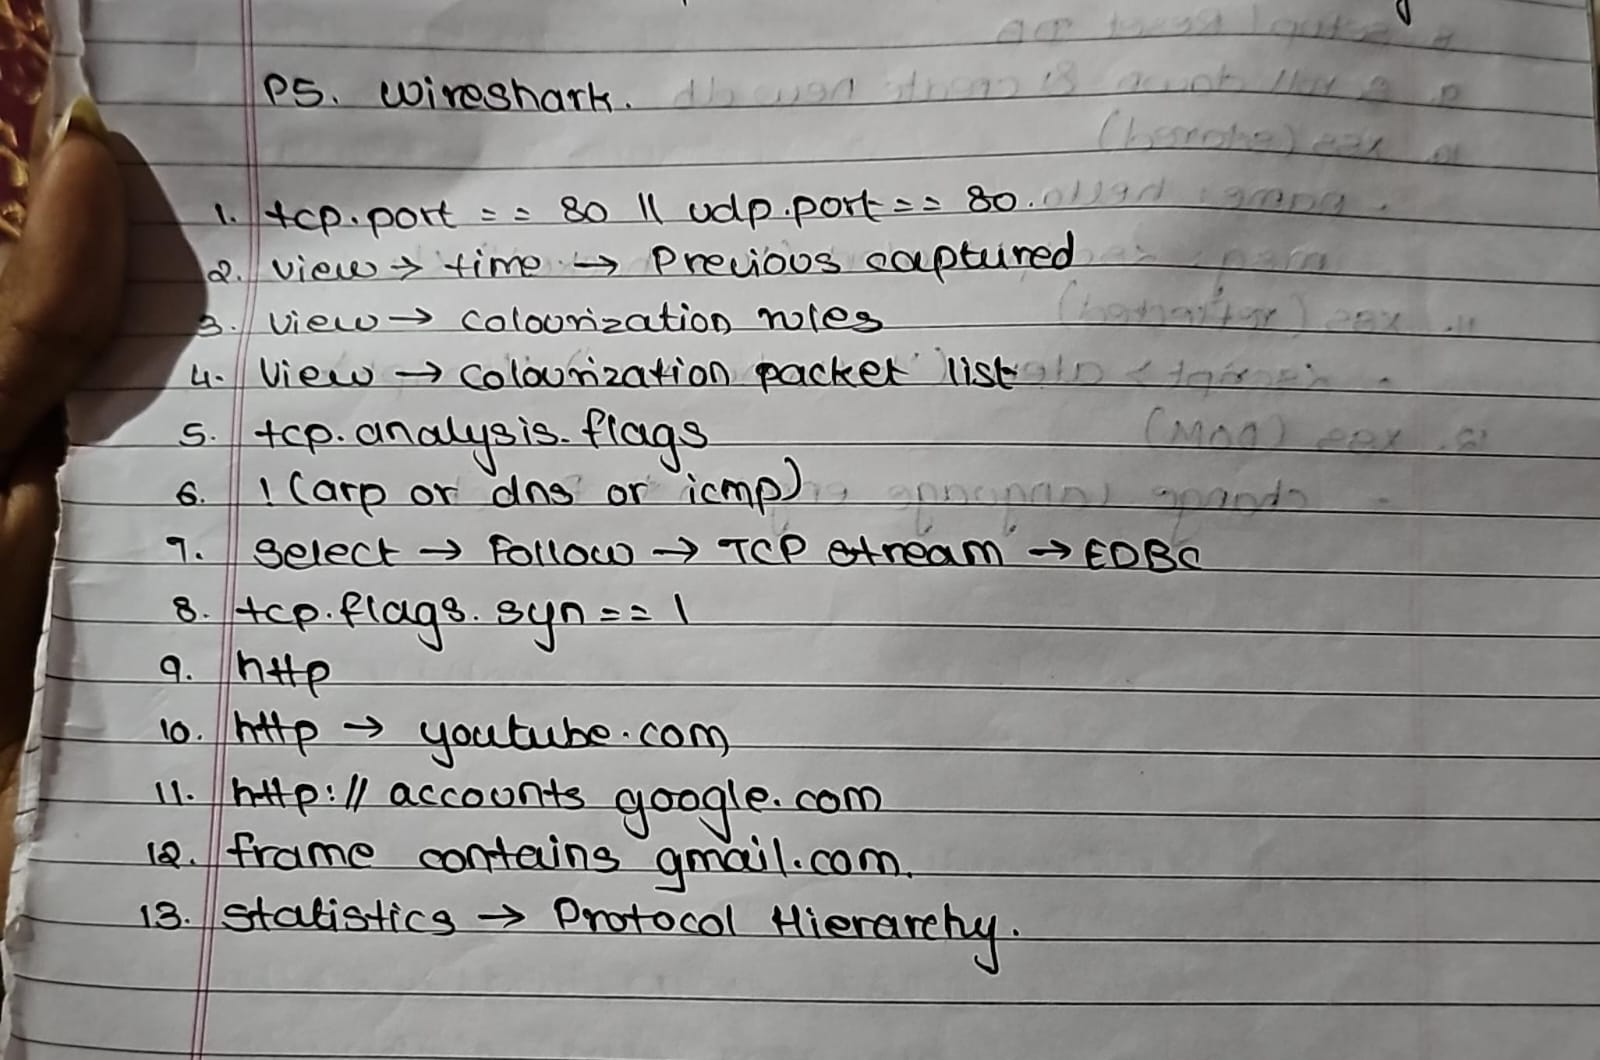 P5. Wireshark.
1. tcp.port == 80 || udp.port == 80.
2. View → time → Previous captured
3. View → Colourization rules
4. View → Colourization packet list
5. tcp.analysis.flags
6. ! (arp or dns or icmp)
7. Select → Follow → TCP stream → EDBC
8. tcp.flags.syn == 1
9. http
10. http → youtube.com
11. http:// accounts google.com
12. frame contains gmail.com.
13. Statistics → Protocol Hierarchy.